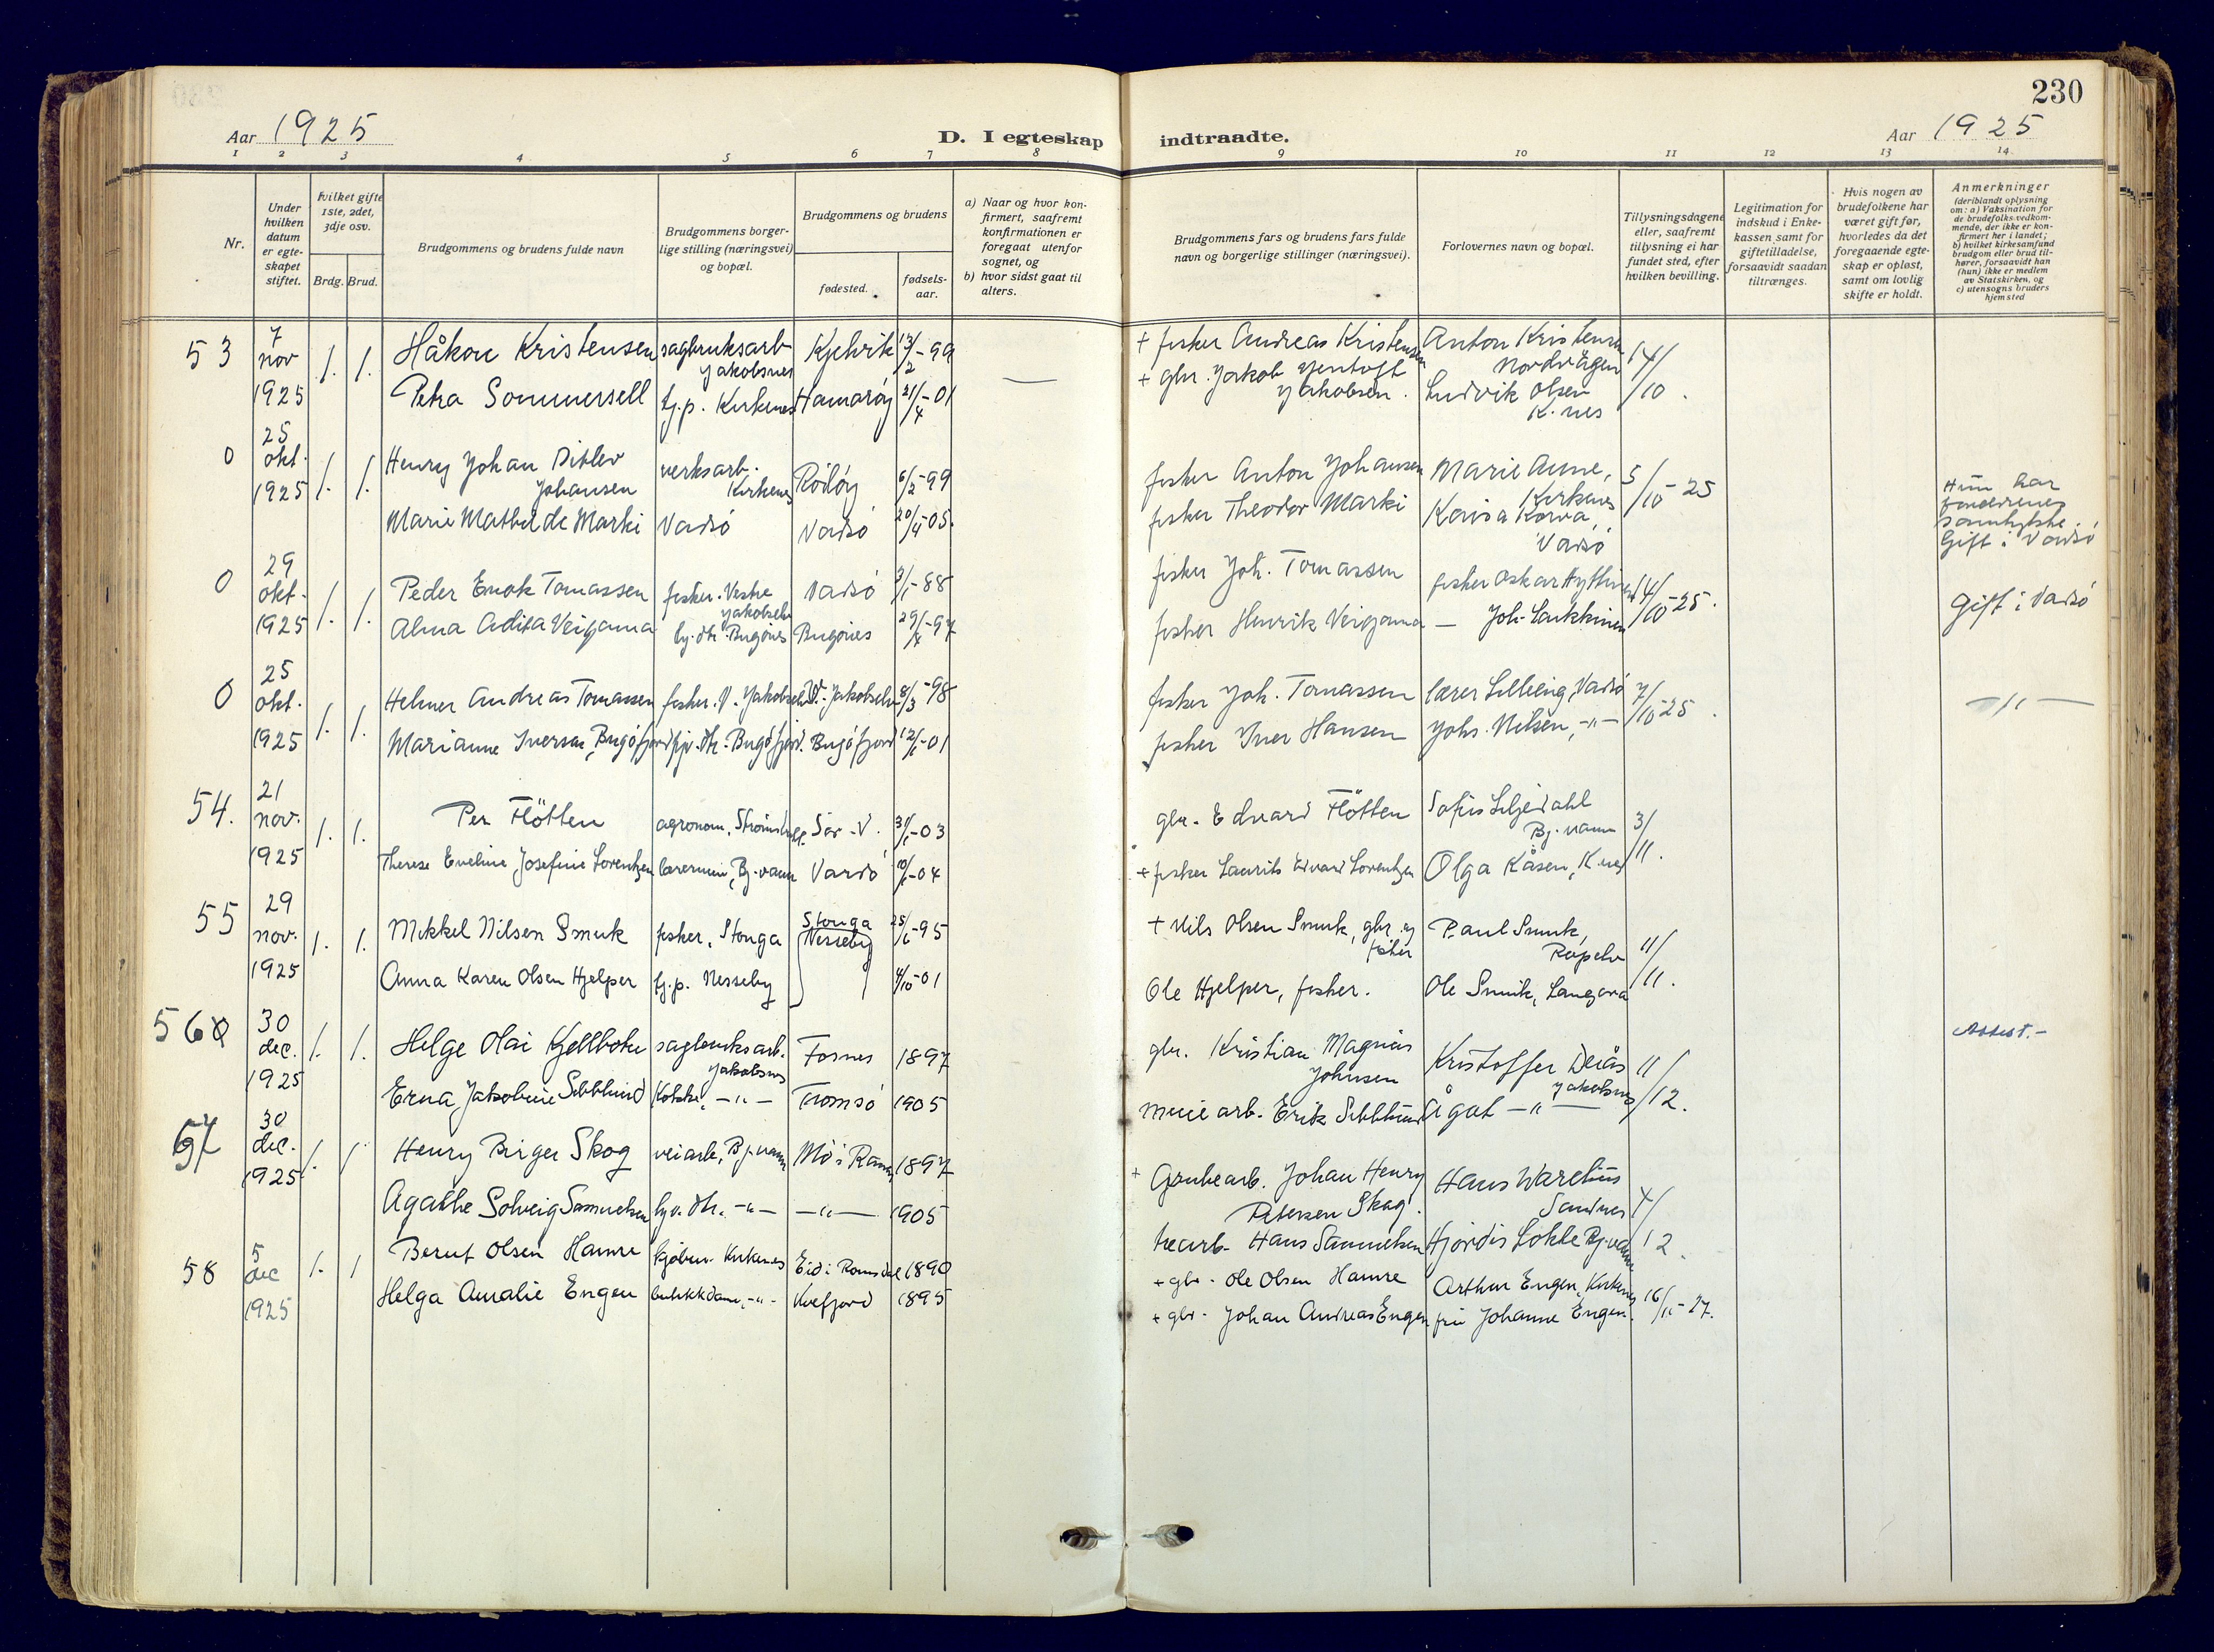 230
Aar 1925
D. I egteskap indtraadte.
Aar 1925
1 2 3 4 5 6 7 8 9 10 11 12 13 14
Nr.
Under hvilken datum er egteskapet stiftet.
Hvilket gifte 1ste, 2det, 3dje osv.
Brdg. Brud.
Brudgommens og brudens fulde navn
Brudgommens borgerlige stilling (næringsvei) og bopæl.
Brudgommens og brudens
fødested.
fødselsaar.
a) Naar og hvor konfirmert, saafremt konfirmationen er foregaat utenfor sognet, og
b) hvor sidst gaat til alters.
Brudgommens fars og brudens fars fulde navn og borgerlige stillinger (næringsvei).
Forlovernes navn og bopæl.
Tillysningsdagene eller, saafremt tillysning ei har fundet sted, efter hvilken bevilling.
Legitimation for indskud i Enkekassen samt for giftetilladelse, forsaavidt saadan tiltrænges.
Hvis nogen av brudefolkene har været gift før, hvorledes da det foregaaende egteskap er opløst, samt om lovlig skifte er holdt.
Anmerkninger (deriblandt oplysning om: a) Vaksination for de brudefolks vedkommende, der ikke er konfirmert her i landet; b) hvilket kirkesamfund brudgom eller brud tilhører, forsaavidt han (hun) ikke er medlem av Statskirken, og c) utensogns bruders hjemsted
53 7 nov 1925 1. 1. Håkon Kristensen sagbruksarb Jakobsnes Kjelvik 13/2-99 — + fisker Andreas Kristensen Anton Kristensen Nordvågen 14/10.
Petra Sommersell tj.p. Kirkenes Hamarøy 21/4-01 + gbr. Jakob Jentoft Jakobsen. Ludvik Olsen K.nes
0 25 okt. 1925 1. 1. Henry Johan Ditlev Johansen verksarb. Kirkenes Rödöy 6/2-99 fisker Anton Johansen Marie Aune, Kirkenes 5/10-25 Hun har forældrenes samtykke. Gift i Vadsö
Marie Mathilde Marki Vadsö Vadsö 20/4-05. fisker Theodor Marki Kaisa Korva, Vadsö
0 29 okt. 1925 1. 1. Peder Enok Tomassen fisker. Vestre Jakobselv Vadsö 3/1-88 fisker Joh. Tomassen fisker Oskar 14/10-25. Gift i Vadsö
Alma Veigama Bugönes Bugönes 29/-97 fisker Henrik Veigama — Joh. Laukkinen
0 25 okt. 1925 1. 1. Helmer Andreas Tomassen fisker. V. Jakobselv V. Jakobselv 8/3-98 fisker Joh. Tomassen lærer Lilleeng, Vadsö 7/10-25. —"—
Marianne Iversen, Bugöfjord Bugöfjord. Bugöfjord 12/1-01 fisker Iver Hansen Johs. Nilsen, —"—
54. 21 nov. 1925 1. 1. Per Flötten agronom, Sör-V. 31/1-03 gbr. Edvard Flötten Sofus Liljedahl Bj.vann 3/11.
Therese Eveline Josefine Lorentzen lærerinne, Bj.vann Vardö 10/1-04 + fisker Laurits Edvard Lorentzen Olga Kåsen, K.nes
55 29 nov. 1925 1. 1. Mikkel Nilsen Smuk fisker, Stonga Stonga Nesseby 25/6-95 + Nils Olsen Smuk, gbr. og fisker Paul Smuk, Ropelv 11/11.
Anna Karen Olsen Hjelper tj.p. Nesseby 4/10-01 Ole Hjelper, fisker. Ole Smuk,
56 30 dec. 1925 1. 1. Helge Olai Kjellbotn sagbruksarb. Jakobsnes Fosnes 1897 gbr. Kristian Magnus Johnsen Kristoffer Jakobsnes 11/12. Attest.-
Erna Jakobine Sebblund Kokke, —"— Tromsö 1905 minearb. Erik Sebblund Ågot —"—
57 30 dec. 1925 1. 1 Henry Birger Skog veiarb., Bj.vann Mo i Rana 1897 + Grubearb. Johan Henry Petersen Skog. Hans Warelius Sandnes 4/12.
Agathe Solveig Samuelsen —"— —"— 1905 Hans Samuelsen Hjördis Lökke Bj.vann
58 5 dec 1925 1. 1 Berut Olsen Hamre kjöbm. Kirkenes Eid i Romsdal 1890 + gbr. Ole Olsen Hamre Arthur Engen, Kirkenes 16/11-27.
Helga Amalie Engen butikkdame, —"— Kvefjord 1895 + gbr. Johan Andreas Engen fru Johanne Engen.